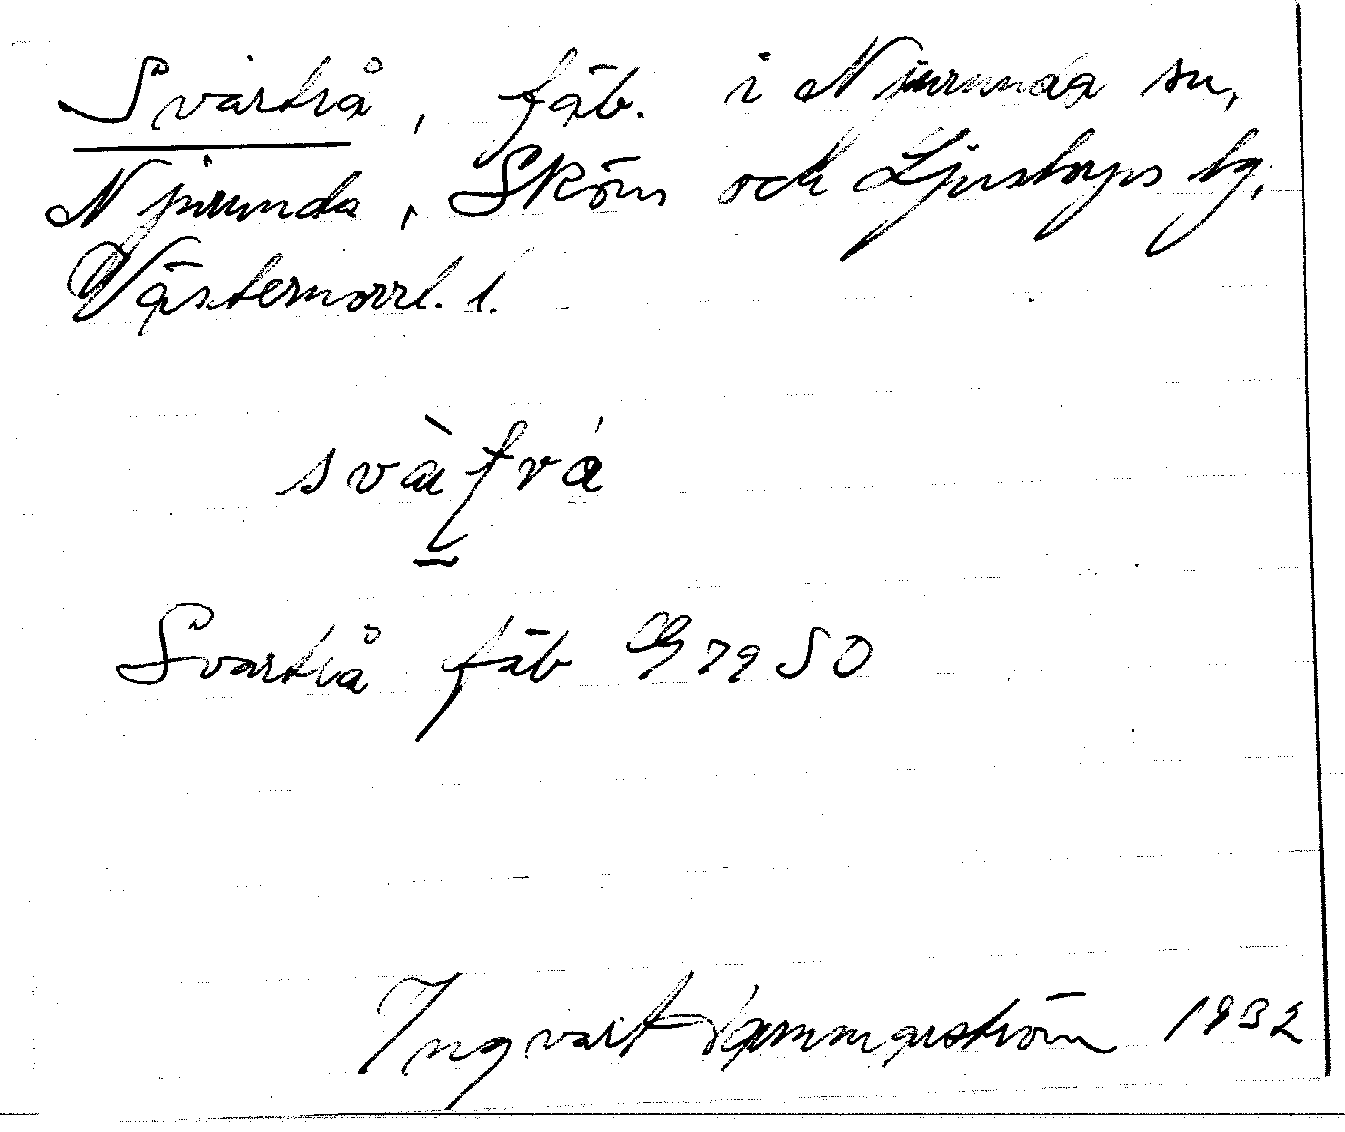 Svartrå, fäb. i Njurunda sn,
Njurunda, Sköns och Ljustorps tg,
Västernorrl. l.
Svartrå fäb G 79 SO
Ingvart Hammarström 1932